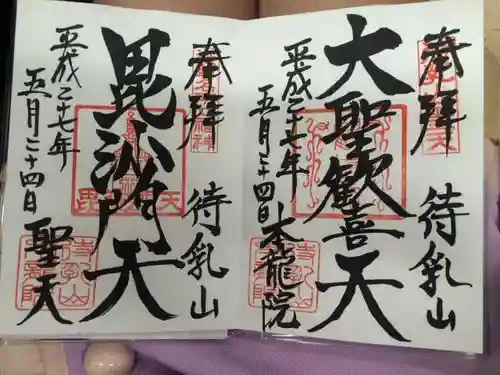 奉拝
待乳山
大聖歓喜天
平成二十七年
五月二十四日
本龍院
奉拝
待乳山
毘沙門天
平成二十七年
五月二十四日
聖天